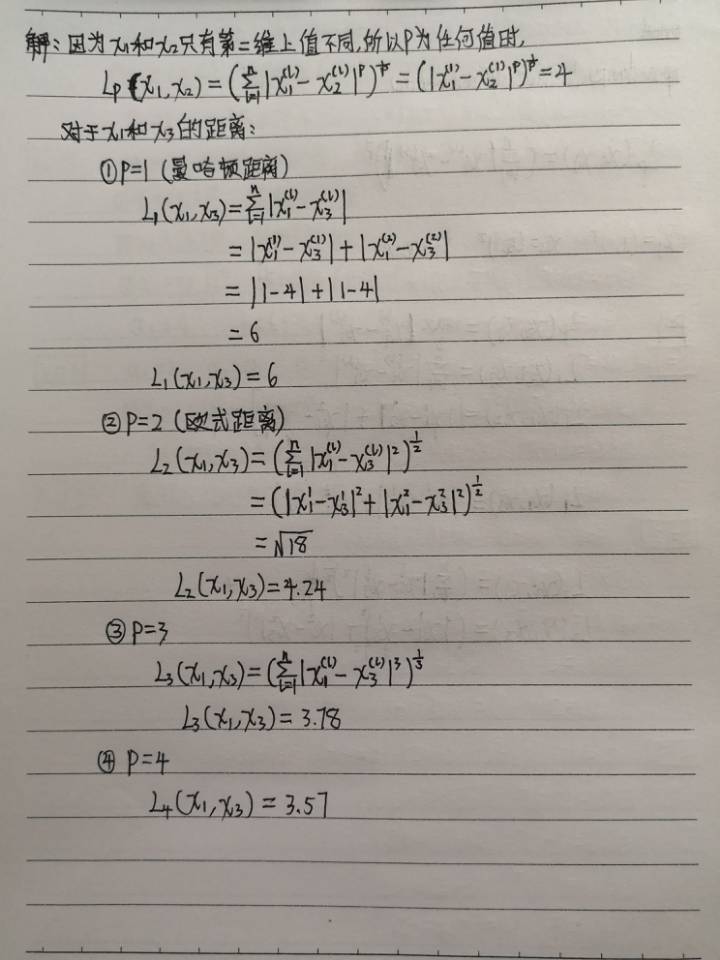 解：因为x₁和x₂只有第二维上值不同,所以P为任何值时,
Lp(x₁,x₂)=(∑ⁿᵢ₌₁|x₁⁽ⁱ⁾-x₂⁽ⁱ⁾|ᵖ)^(1/p)=(|x₁⁽¹⁾-x₂⁽¹⁾|ᵖ)^(1/p)=4
对于x₁和x₃的距离：
①P=1(曼哈顿距离)
L₁(x₁,x₃)=∑ⁿᵢ₌₁|x₁⁽ⁱ⁾-x₃⁽ⁱ⁾|
=|x₁⁽¹⁾-x₃⁽¹⁾|+|x₁⁽²⁾-x₃⁽²⁾|
=|1-4|+|1-4|
=6
L₁(x₁,x₃)=6
②P=2(欧式距离)
L₂(x₁,x₃)=(∑ⁿᵢ₌₁|x₁⁽ⁱ⁾-x₃⁽ⁱ⁾|²)^(1/2)
=(|x₁¹-x₃¹|²+|x₁²-x₃²|²)^(1/2)
=√18
L₂(x₁,x₃)=4.24
③P=3
L₃(x₁,x₃)=(∑ⁿᵢ₌₁|x₁⁽ⁱ⁾-x₃⁽ⁱ⁾|³)^(1/3)
L₃(x₁,x₃)=3.78
④P=4
L₄(x₁,x₃)=3.57